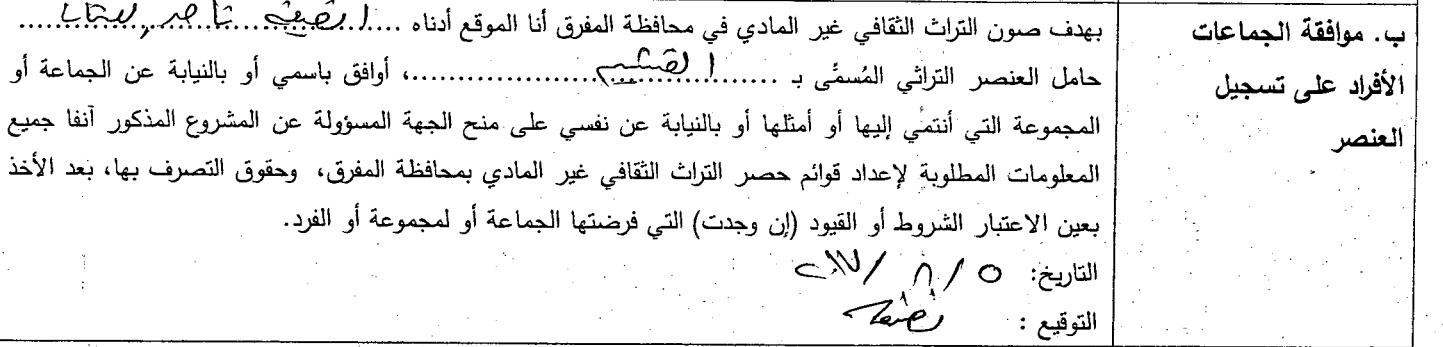 ب. موافقة الجماعات
الأفراد على تسجيل
العنصر
بهدف صون التراث الثقافي غير المادي في محافظة المفرق أنا الموقع أدناه ....................
حامل العنصر التراثي المُسمَّى بـ ....................، أوافق باسمي أو بالنيابة عن الجماعة أو
المجموعة التي أنتمي إليها أو أمثلها أو بالنيابة عن نفسي على منح الجهة المسؤولة عن المشروع المذكور آنفا جميع
المعلومات المطلوبة لإعداد قوائم حصر التراث الثقافي غير المادي بمحافظة المفرق، وحقوق التصرف بها، بعد الأخذ
بعين الاعتبار الشروط أو القيود (إن وجدت) التي فرضتها الجماعة أو لمجموعة أو الفرد.
التاريخ: ٥ / ٨ / ٢٠١٧
التوقيع :